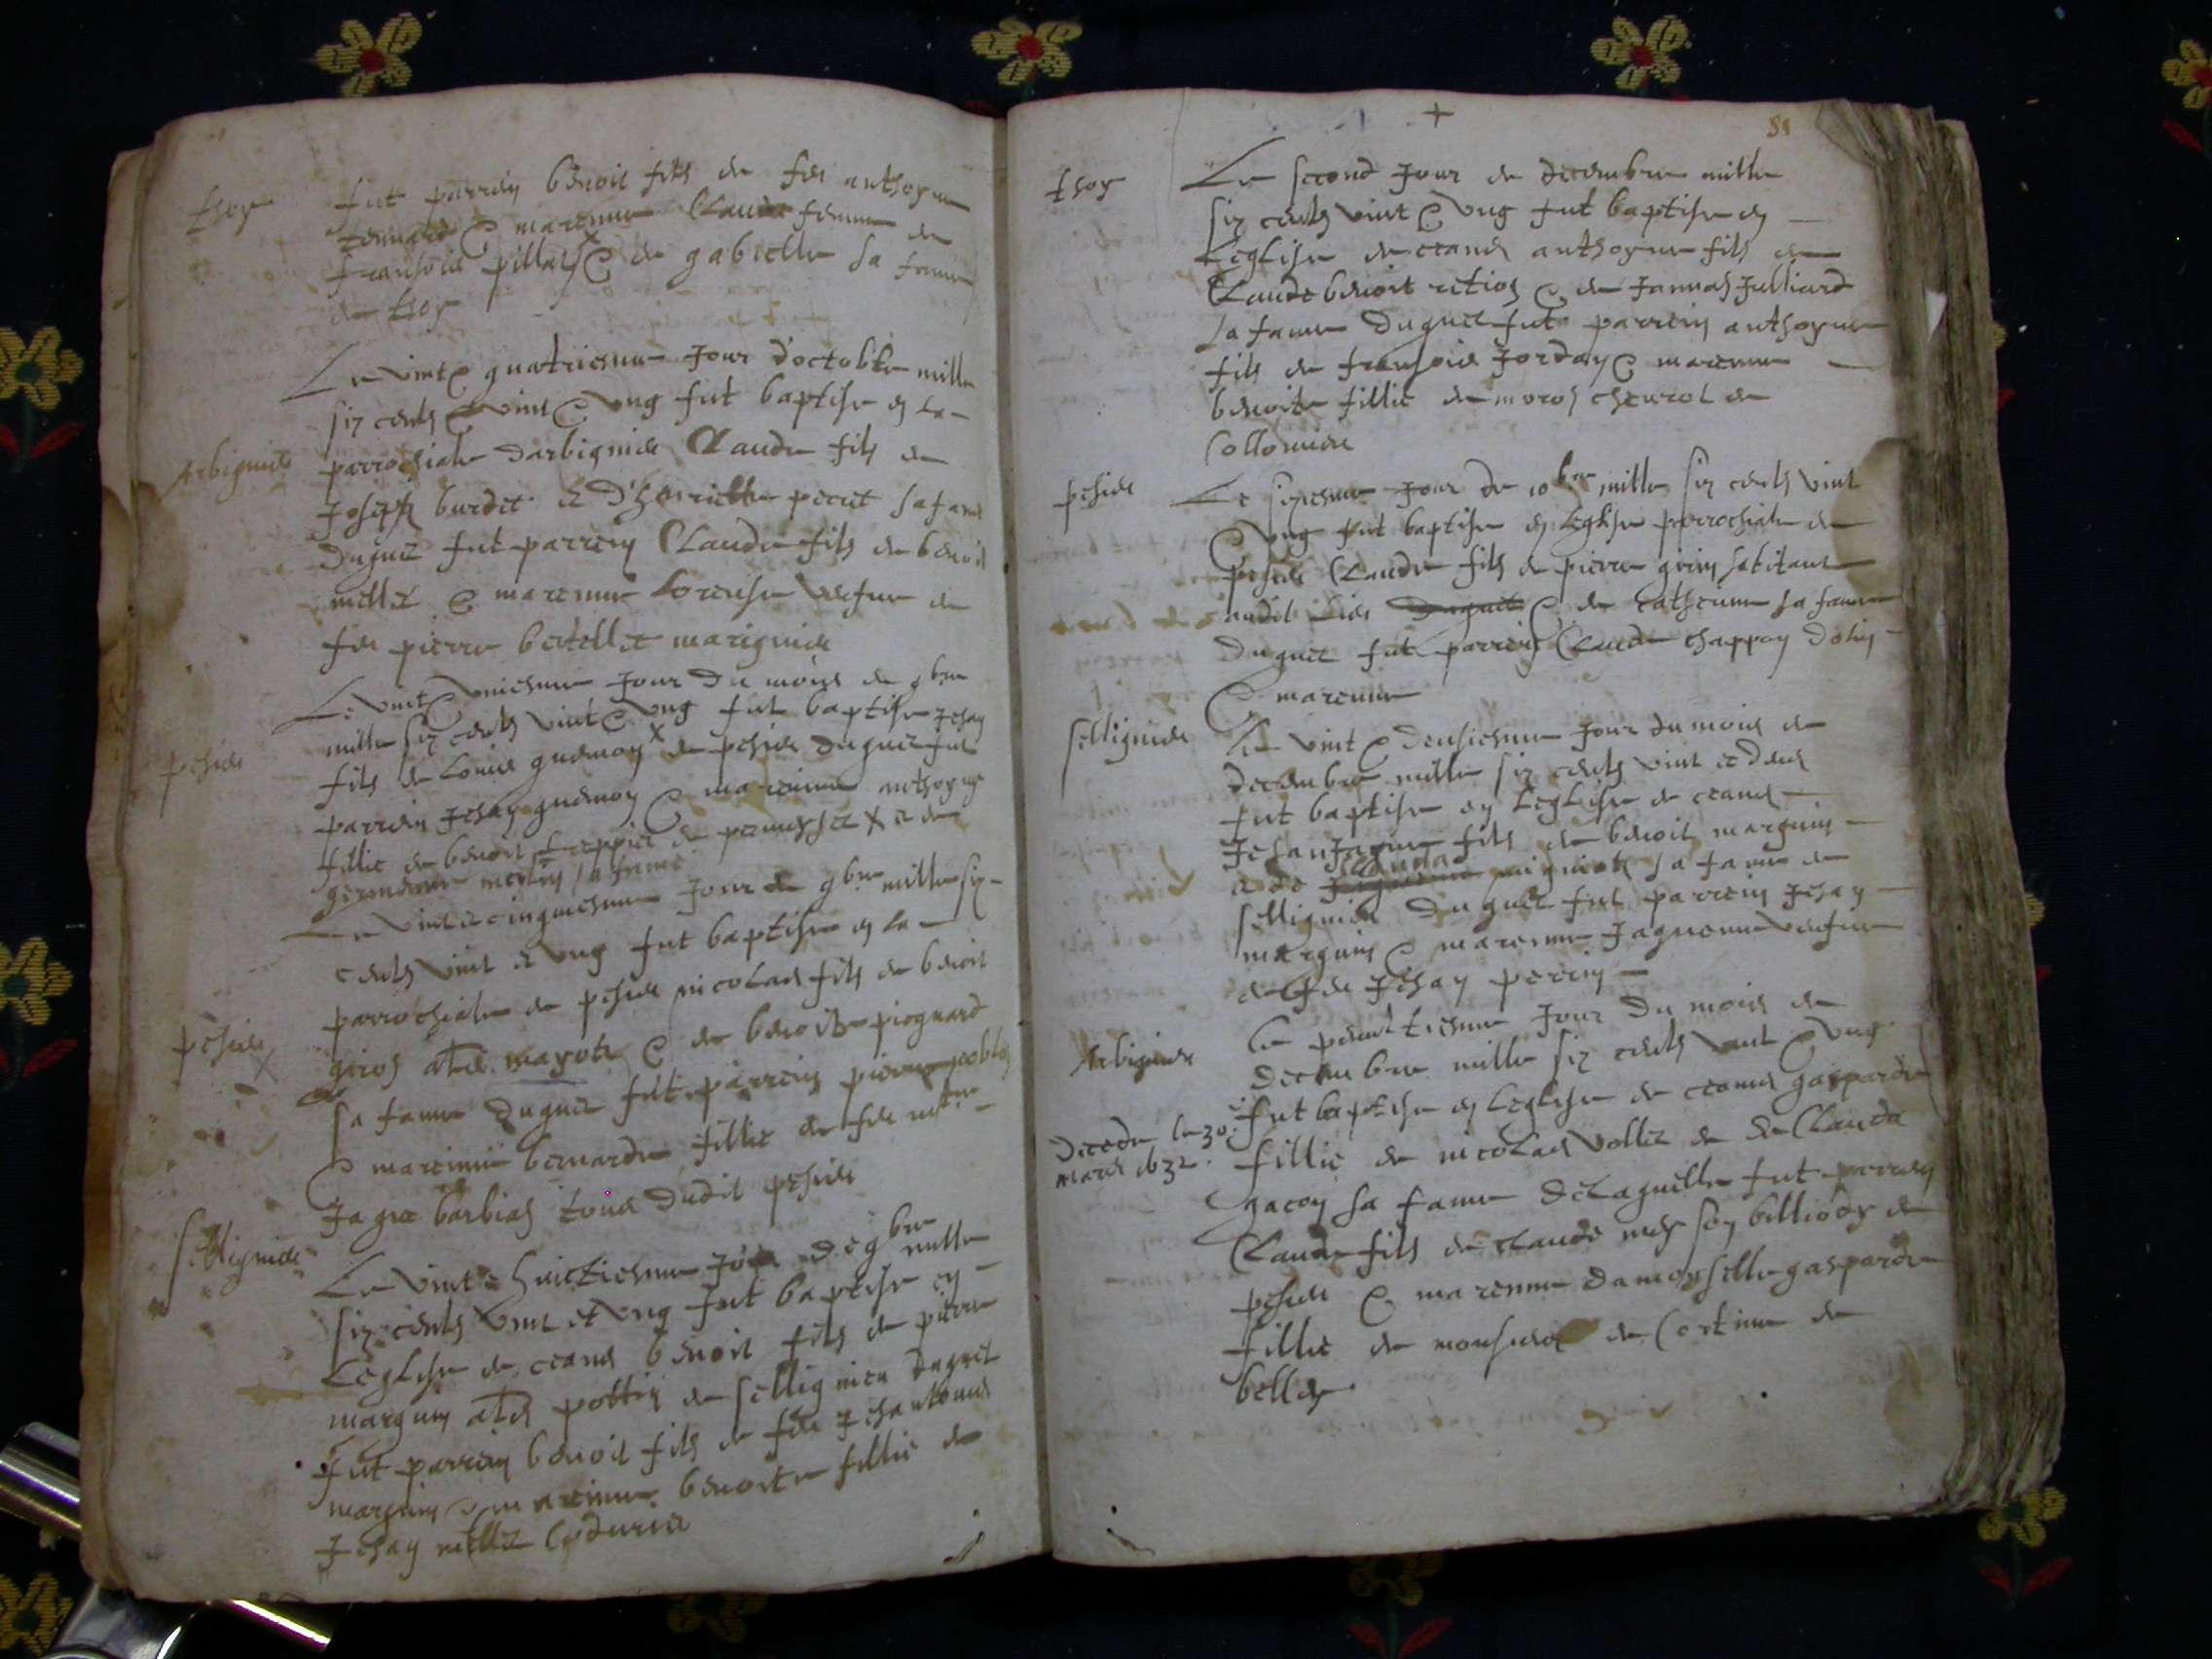 thoy
fut parrein benoit fils de feu anthoyne
& marenne Claude femme de
fransois pillat & de gabrielle sa fame
de thoy
Le vint & quatriesme Jour d'octobre mille
six cents & vint & ung fut baptise en la
Arbignieu
parrochiale darbignieu Claude fils de
Joseph burdet et d'henriette perret sa fame
duquel fut parrein Claude fils de benoit
mellet & marenne Lorense vefue de
feu pierre bertellet marignieu
Le vint & uniesme Jour du mois de 9bre
mille six cents vint & ung fut baptise Jehan
pesieu
fils de Louis guemon x de pesieu duquel fut
parrein Jehan guemon & marenne anthoyne
fillie de benoit treppier de x et de
sa fame
Le vint et cinquiesme Jour de 9bre mille six
cents vint et ung fut baptise en la
pesieu
parrochiale de pesieu nicolas fils de benoit
giros als mayots & de benoiste picquard
sa fame duquel fut parrein pierre
& marenne bernarde fillie de feu
Jaque barbias tous dudit pesieu
Sellignieu
Le vint & huictiesme Jour de 9bre mille
six cents vint et ung fut baptise en
Leglise de ceans benoit fils de pierre
marguin als pottin de sellignieu duquel
fut parrein benoit fils de feu Jehan
marguin & marenne benoite fillie de
Jehan mellet Coduriei
81
thoy
Le second Jour de decembre mille
six cents vint & ung fut baptise en
Leglise de ceans anthoyne fils de
Claude benoit & de Jannas Julliard
sa fame duquel fut parrein anthoyne
fils de fransois Jordan & marenne
benoite fillie de moros chevrol de
Collomieu
pesieu
Le sixiesme Jour de 10bre mille six cents vint
& ung fut baptise en Leglise parrochiale de
pesieu Claude fils de pierre girin habitant
audit lieu duquel & de Catherine sa fame
duquel fut parrein Claude chappon
& marenne
sellignieu
Le vint & deusiesme Jour du mois de
decembre mille six cents vint et deus
fut baptise en Leglise de ceans
Jehan Jaques fils de benoit marguin
et de Clauda mignoth sa fame de
sellignieu duquel fut parrein Jehan
marguin & marenne Jaqueme vefue
de feu Jehan perrin
Arbignieu
Le penultiesme Jour du mois de
decembre mille six cents vint & ung
fut baptise en Leglise de ceans gasparde
Decede le 30
mars 1632.
fillie de nicolas vollet de de Clauda
gacon sa fame de Laquelle fut parrein
Claude fils de Claude de
pesieu & marenne damoyselle gasparde
fillie de monsieur de Cortine de
belley